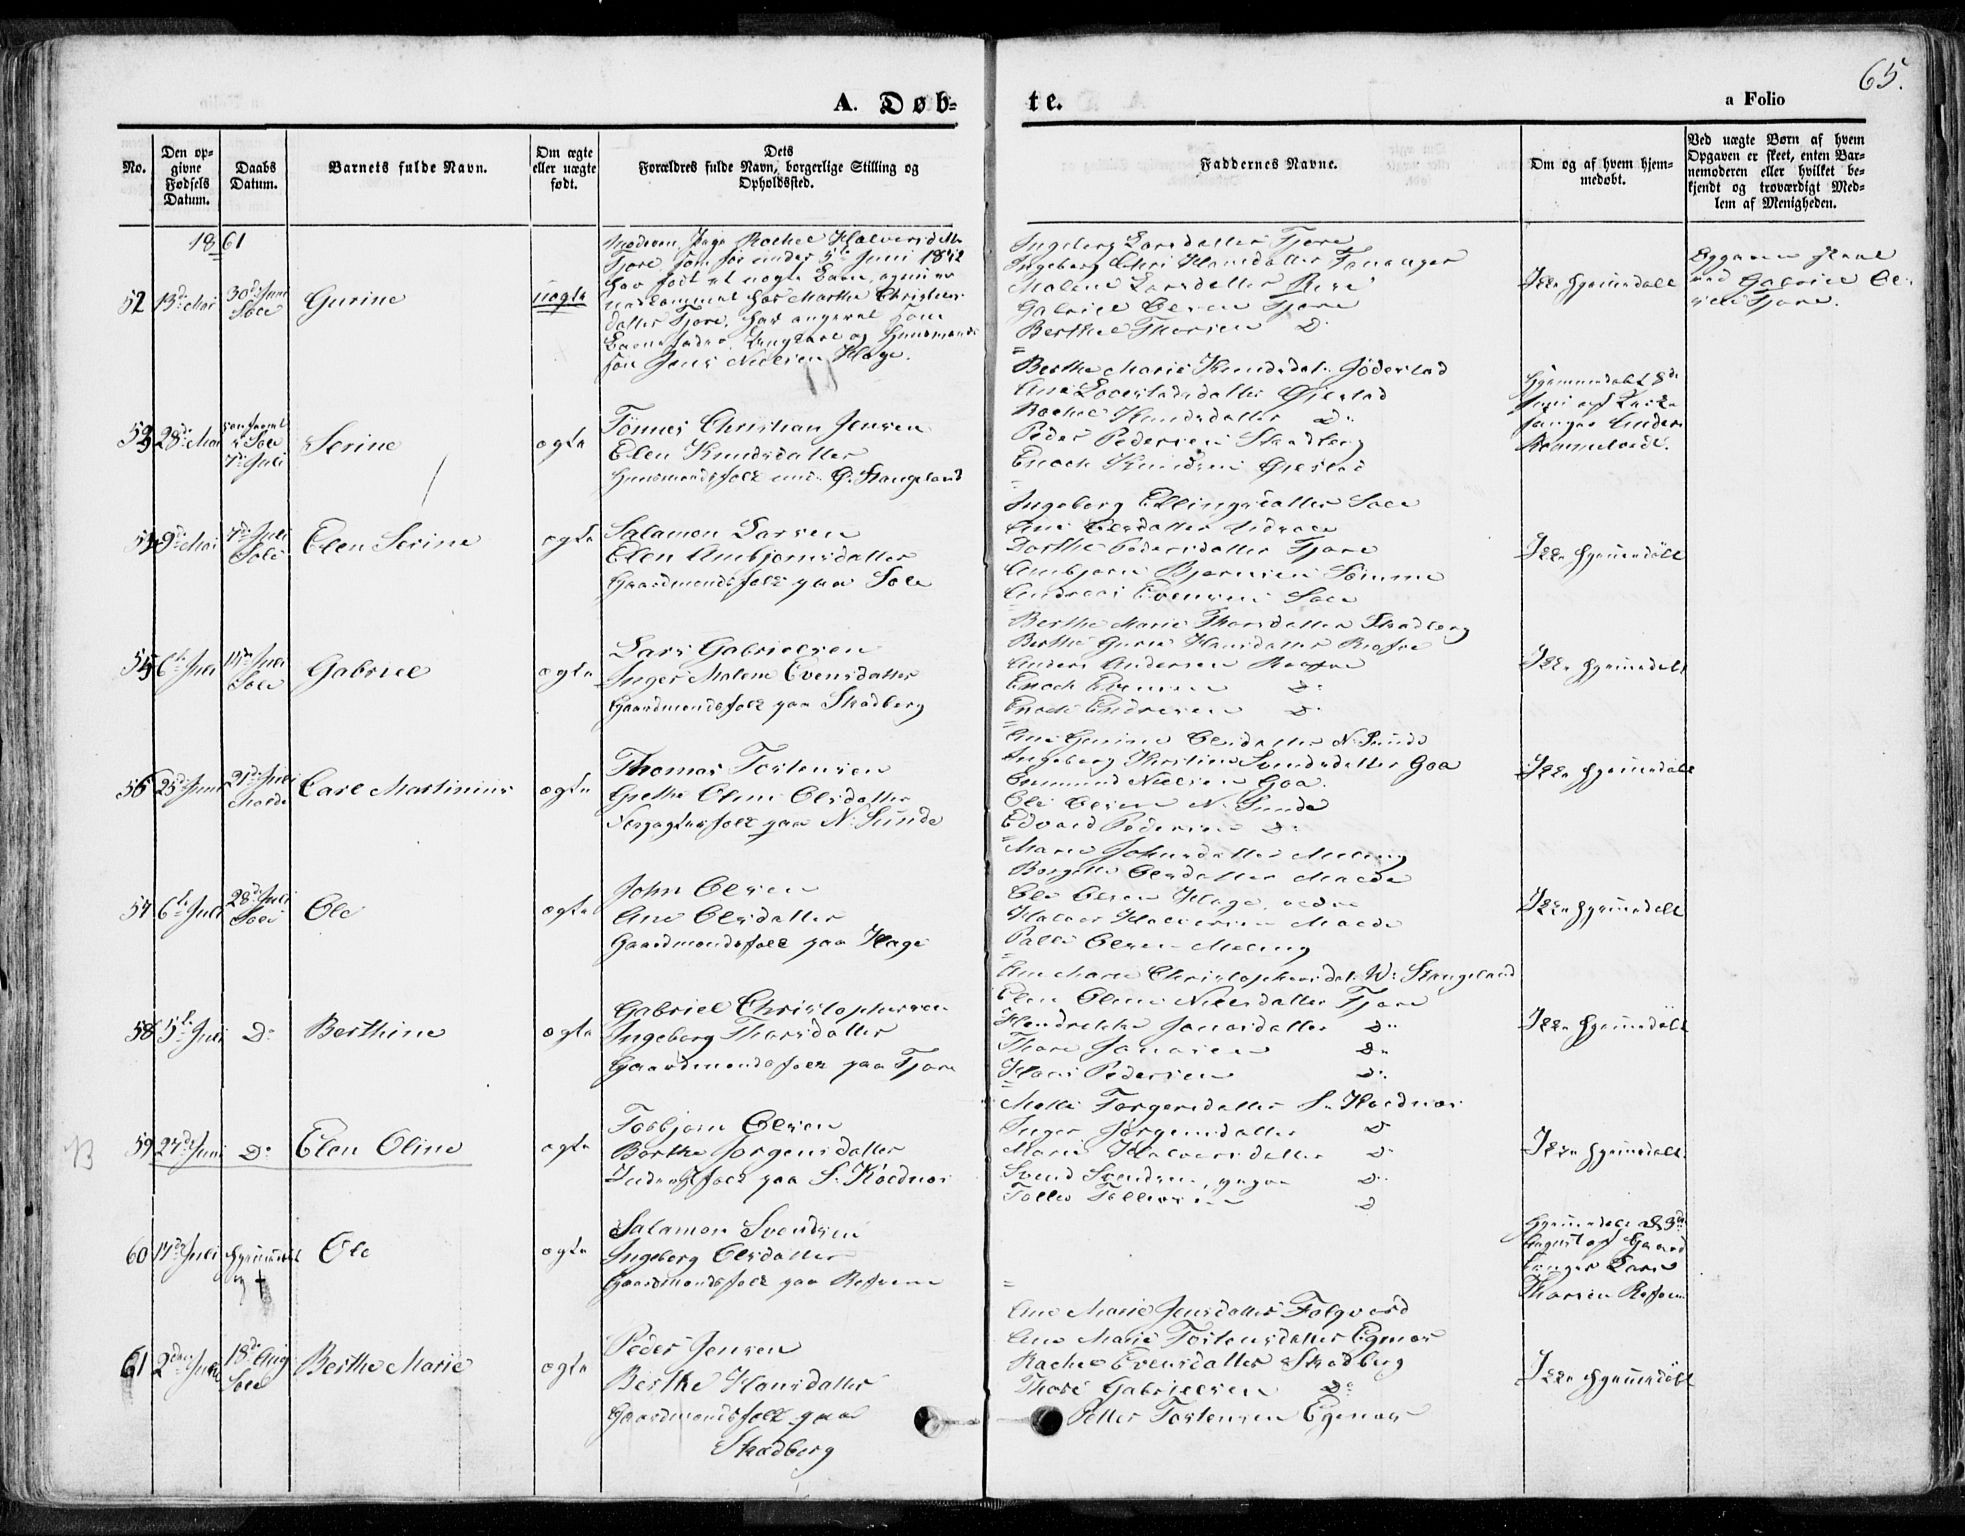 65.
A. Døb=
te.
a Folio
No.
Den op=
givne
Fødsels
Datum.
Daabs
Datum.
Barnets fulde Navn.
Om ægte
eller uægte
født.
Dets
Forældres fulde Navn, borgerlige Stilling og
Opholdssted.
Faddernes Navne.
Om og af hvem hjem=
medøbt.
Ved uægte Børn af hvem
Opgaven er skeet, enten Bar=
nemoderen eller hvilket be=
kjendt og troværdigt Med=
lem af Menigheden.
1861
52 13de Mai
30de Juni
Sole
Gurine
uægte
Moderen, Pige Rachel Halversdatter
Tjore, som før under 5te Juni 1842
har født et uægte Barn, og nu er
nedkommet hos Marthe Christens
datter Tjore, har angivet som
Barnefader, Ungkarl og Huusmands
søn Jens Nielsen Hage.
Ingeborg Larsdatter Tjore
Malene Larsdatter
Gabriel Olsen Tjore
Berthel Thorsen Do
Ikke hjemmedøbt
Opgaven skeet
ved Gabriel Ol-
sen Tjore.
53 28de Mai
Sole
7de Juli
Serine
ægte
Tönnes Christian Jensen
Elen Knudsdatter
Huusmandsfolk und. Ø. Stangeland
Berthe Marie Knudsdat.
Rachel Knudsdatter Do
Peder Pedersen Skadberg
Enoch Knudsen
Hjemmedøbt 8de
Juni af
54 9de Mai
7de Juli
Sole
Elen Serine
ægte
Salamon Larsen
Elen Ambjørnsdatter
Gaardmandsfolk paa Sole
Ingeborg Ellingsdatter Sole
Dorthe Pedersdatter Tjore
Ambjørn Bjørnsen Sömme
Andreas Evensen Sole
Ikke hjemmedøbt
55 6te Juli
14de Juli
Sole
Gabriel
ægte
Lars Gabrielsen
Inger Malene Evensdatter
Gaardmandsfolk paa Skadberg
Berthe Marie Thorsdatter Skadberg
Berthe Gurie Hansdatter
Anders Andersen
Enoch Evensen Do
Enoch Endresen Do
Ikke hjemmedøbt
56 25de Juni
21de Juli
Malde
Carl Martinius
ægte
Thomas Tostensen
Grethe Oline Olsdatter
Forpagterfolk paa N. Sunde
Ane Gurine Olsdatter N. Sunde
Ingeborg Kirstine Svendsdatter Goa
Gunmund Nielsen Goa.
Ole Olsen N. Sunde
Edvard Pedersen Do
Ikke hjemmedøbt
57 6te Juli
28de Juli
Sole
Ole
ægte
John Olsen
Ane Olsdatter
Gaardmandsfolk paa Hage
Marie Johnsdatter Meling
Borgille Olsdatter Malde
Ole Olsen Hage, ældre
Halvor Halvorsen Malde
Palle Olsen Meling
Ikke hjemmedøbt
58 5te Juli
Do
Berthine
ægte
Gabriel Christophersen
Ingeborg Thorsdatter
Gaardmandsfolk paa Tjore
Ane Marie Christophersdat. W. Stangeland
Elen Oline Nielsdatter Tjore
Hendrikke Jonasdatter Do
Thore Jonasen Do
Hans Pedersen Do
Ikke hjemmedøbt
59 27de Juni
Do
Elen Oline
ægte
Torbjørn Olsen
Berthe Jørgensdatter
Inderstfolk paa S. Koldnæs
Malli Torgersdatter S. Kolnæs
Inger Jørgensdatter Do
Marie Halvorsdatter Do
Svend Svendsen, yngre Do
Tollev Tollevsen Do
Ikke hjemmedøbt
60 17de Juli
hjemmedøbt
og †
Ole
ægte
Salamon Svendsen
Ingeborg Olsdatter
Gaardmandsfolk paa Refsnæs
Hjemmedøbt d. 3de
August af Gaard
bruger Lars
Thorsen
61 2den Juli
18de Aug
Sole
Berthe Marie
ægte
Peder Jensen
Berthe Hansdatter
Gaardmandsfolk paa
Skadberg
Ane Marie Jensdatter Folgverö
Ane Marie Tostensdatter Egenæs
Rachel Evensdatter Skadberg
Thore Gabrielsen Do
Peter Tostensen Egenæs
Ikke hjemmedøbt